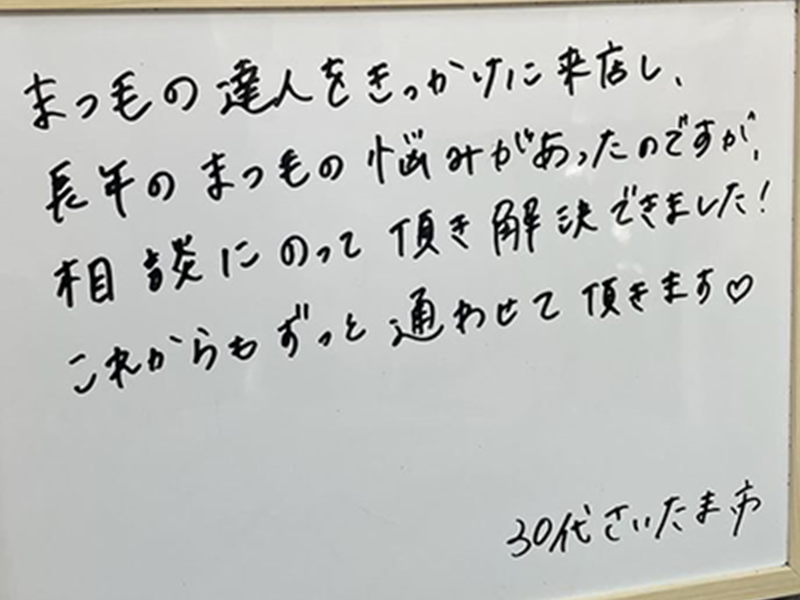 まつ毛の達人をきっかけに来店し、
長年のまつもの悩みがあったのですが、
相談にのって頂き解決できました!
これからもずっと通わせて頂きます♡
30代さいたま市